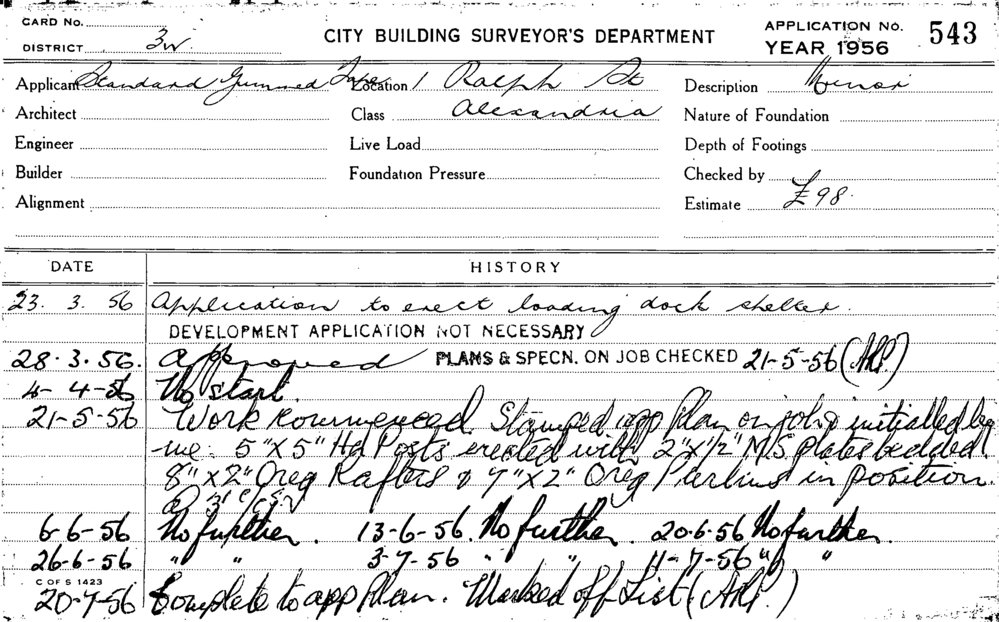 CARD No.
DISTRICT 3W
CITY BUILDING SURVEYOR'S DEPARTMENT
APPLICATION No. 543
YEAR 1956
Applicant Standard Gummed Tape Location 1 Ralph St Description Minor
Architect Class Alexandria Nature of Foundation
Engineer Live Load Depth of Footings
Builder Foundation Pressure Checked by
Alignment Estimate £98.
DATE HISTORY
23. 3. 56 Application to erect loading dock shelter.
DEVELOPMENT APPLICATION NOT NECESSARY
28.3.56. Approved PLANS & SPECN. ON JOB CHECKED 21-5-56 (ARP.)
4-4-56 No start.
21-5-56 Work commenced. Stamped app Plan on job & initialled by
me. 5"X5" Hd Posts erected with 2"X1/2" M.S. plates bedded.
8"X2" Oreg Rafters & 4"X2" Oreg Purlins in position.
@ 3'
6-6-56 No further. 13-6-56. No further. 20-6-56 No further.
26-6-56 " " 3-7-56 " " 11-7-56 " "
C OF S 1423
20-7-56 Complete to app Plan. Marked off List (ARP.)